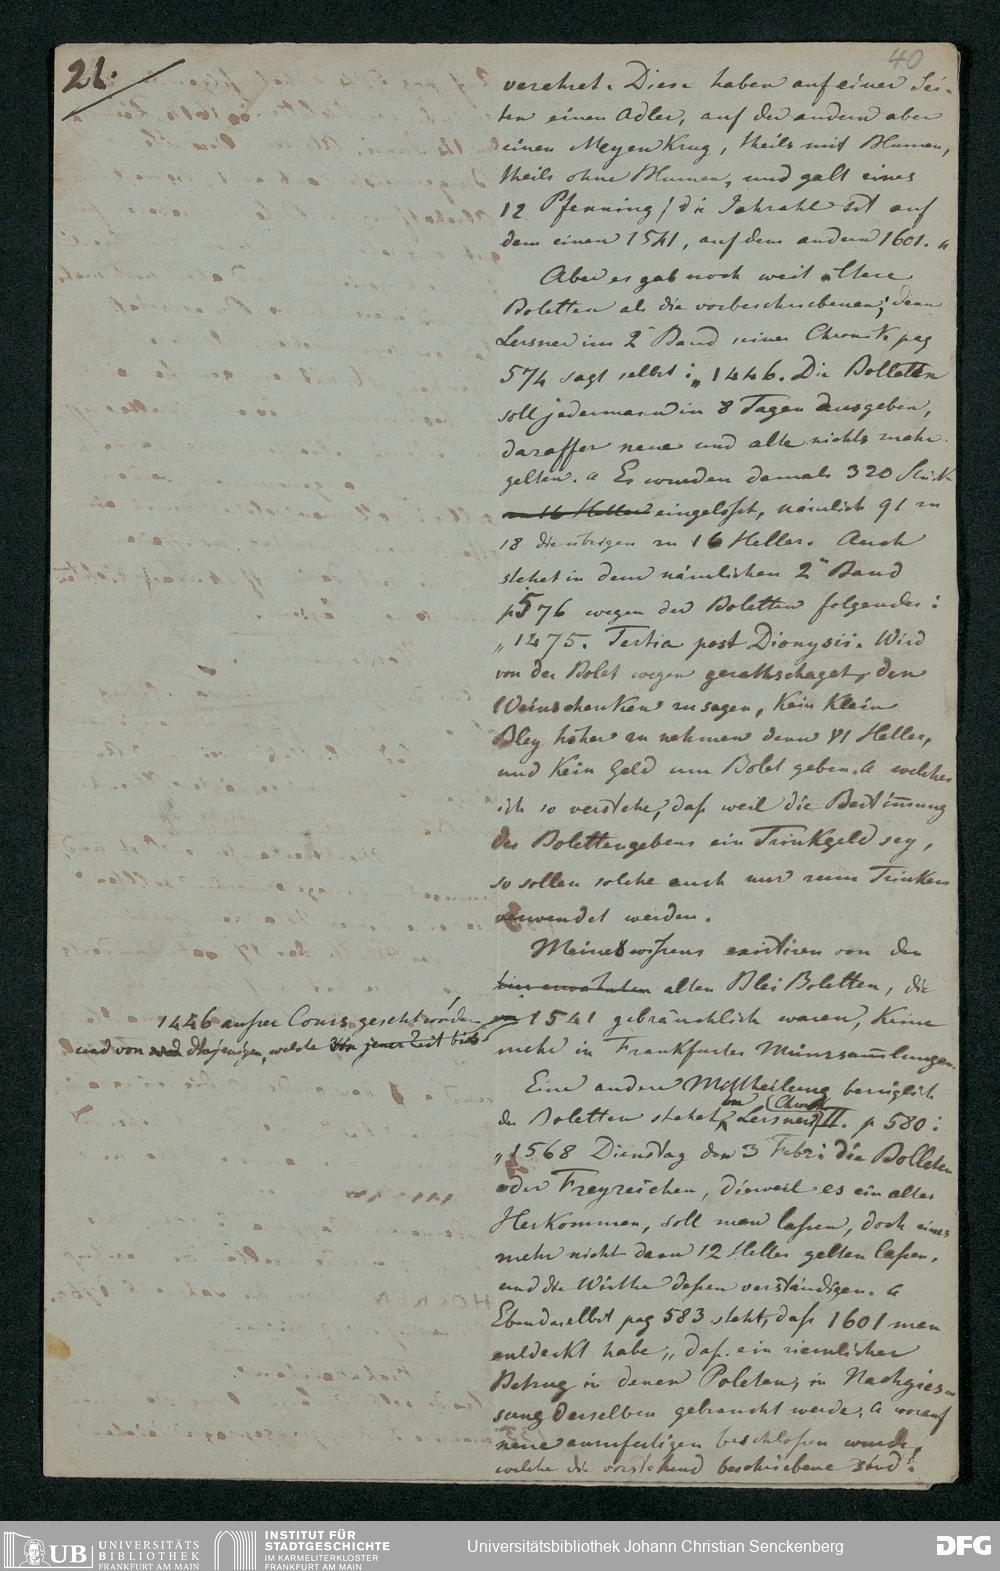 21.
40
verehret. Diese haben auf einer Sei-
ten einen Adler, auf der andern aber
einen MeyenKrug, theils mit Blumen,
theils ohne Blumen, und galt eines
12 Pfenning / die Jahrzahl ist auf
dem einen 1541, auf dem andern 1601. "
Aber es gab noch weit altere
Boletten als die vorbeschriebenen; denn
Lersner im 2 Band seiner Chronik pag
574 sagt selbst: „1446. Die Bolleten
soll jedermann in 8 Tagen ausgeben,
daraffter neue und alte nichts mehr
gelten. " Es wurden damals 320 Stück
zu 16 Heller eingelösst, nämlich 91 zu
18 die übrigen zu 16 Heller. Auch
stehet in dem nämlichen 2n Band
p 576 wegen der Boletten folgendes:
„1475. Tertia post Dionysii. Wird
von der Bolet wegen gerathschaget, den
Weinschenken zu sagen, kein klein
Bley höher zu nehmen denn VI Heller,
und kein Geld um Bolet geben. " welches
ich so verstehe, daß weil die Bestimmung
des Bolettengebens ein Trinkgeld sey,
so sollen solche auch nur zum Trinken
verwendet werden.
Meines wißens existiren von den
hier erwähnten alten Blei Boletten, die
1446 ausser Cours gesetzt worden
und von denjenigen, welche von jener Zeit bis
1541 gebräuchlich waren, keine
mehr in Frankfurter Münzsammlungen.
Eine andere Mittheilung bezüglich
der Boletten stehet in Lersners Chronik II. p 580:
„1568 Dienstag den 3 Febr: die Bolleten
oder Freyzeichen, dieweil es ein altes
Herkommen, soll man laßen, doch eines
mehr nicht dann 12 Heller gelten laßen,
und die Wirthe deßen verständigen. "
Ebendaselbst pag 583 steht, daß 1601 man
entdeckt habe „daß ein ziemlicher
Betrug in denen Poleten, in Nachgies-
sung derselben gebraucht werde, " worauf
neue anzufertigen beschloßen wurde,
welche die vorstehend beschriebene sind.
UB UNIVERSITÄTS
BIBLIOTHEK
FRANKFURT AM MAIN
INSTITUT FÜR
STADTGESCHICHTE
IM KARMELITERKLOSTER
FRANKFURT AM MAIN
Universitätsbibliothek Johann Christian Senckenberg
DFG